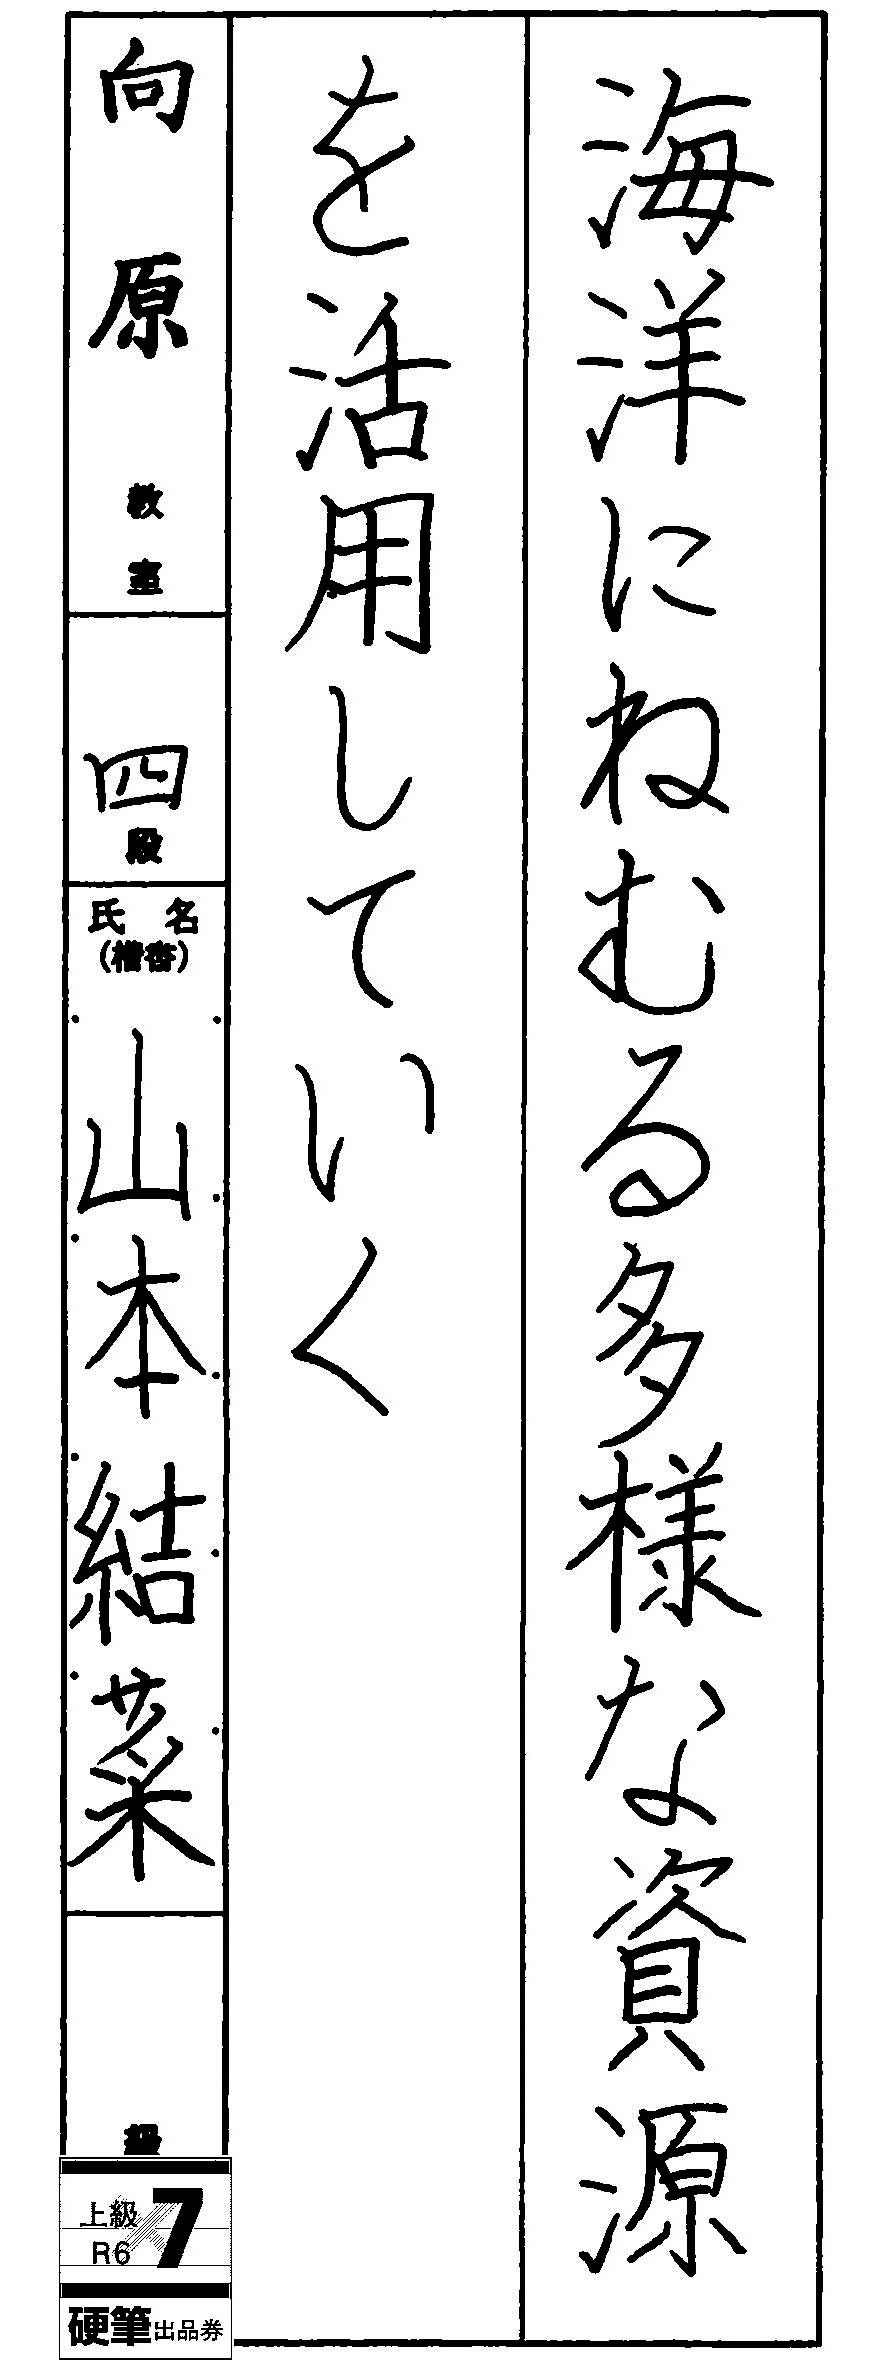 海洋にねむる多様な資源
を活用していく
向原教室
四段
氏名
(楷書)
山本結菜
級
上級
R6
7
硬筆出品券